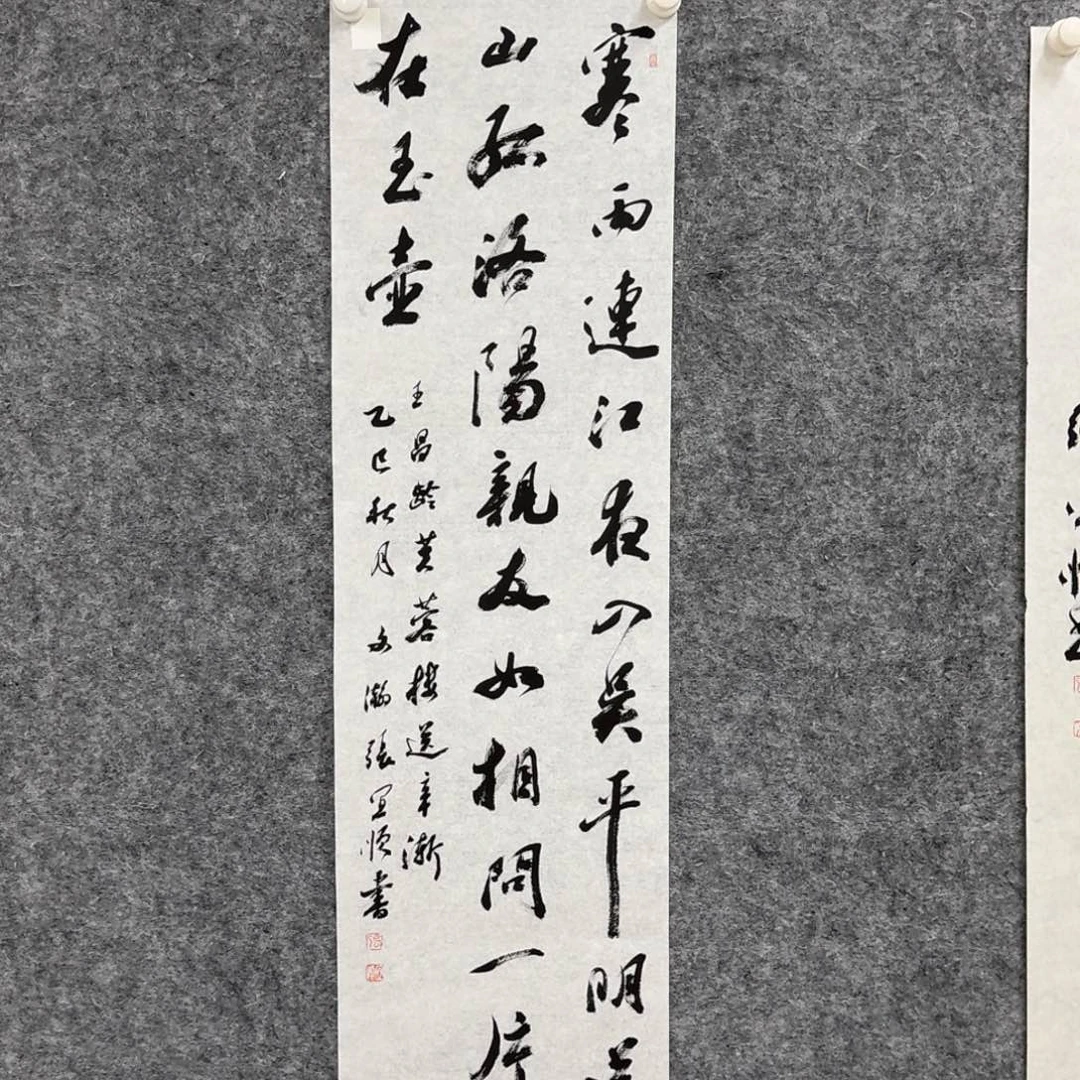 寒雨連江夜入吳平明送
山孤洛陽親友如相問一片
在玉壺
王昌齡芙蓉樓送辛漸
乙巳秋月 文瀚張宜順書